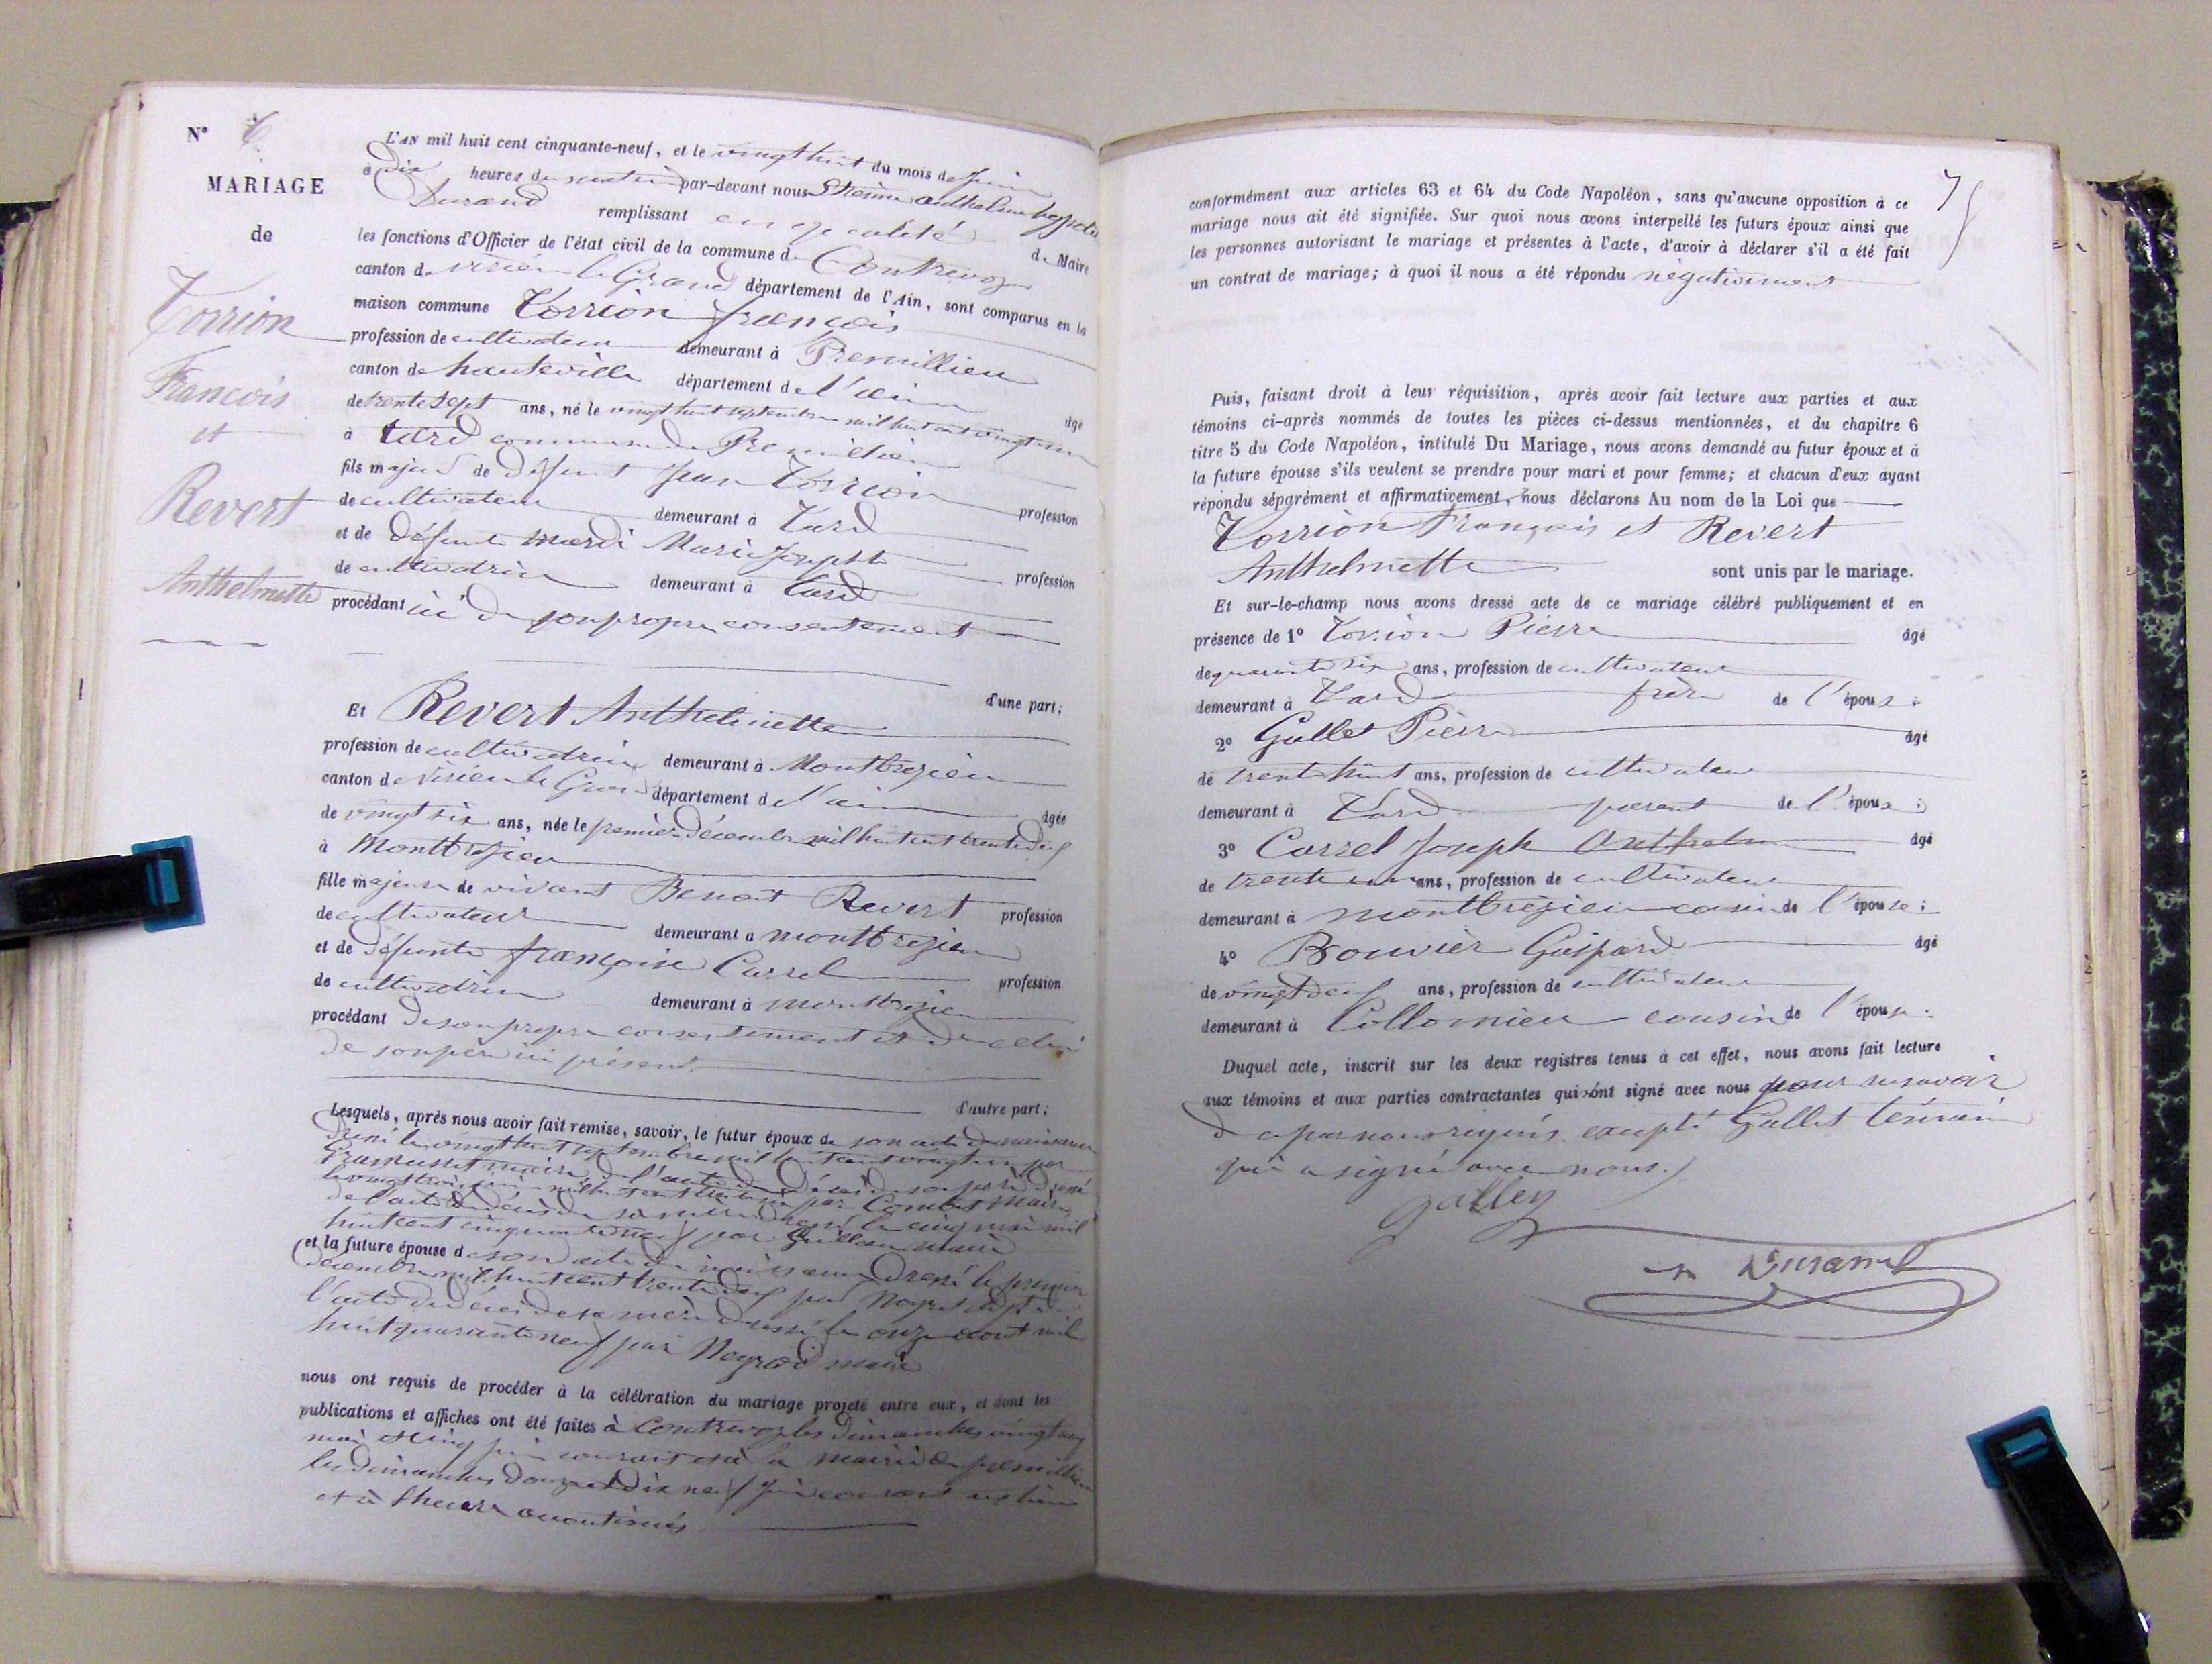 N° 6
MARIAGE
de
Torrion
François
et
Revert
Anthelmette
L'AN mil huit cent cinquante-neuf, et le vingt huit du mois de juin
à Dix heures du matin par-devant nous Anthelme hyppolite
Durand remplissant en qualité de Maire
les fonctions d'Officier de l'état civil de la commune de Contrevoz
canton de Virieu le Grand département de l'Ain, sont comparus en la
maison commune Torrion françois
profession de cultivateur demeurant à Premillieu
canton de hauteville département de l'ain âgé
de trente sept ans, né le vingt huit septembre mil huit cent vingt un
à tard commune de Premillieu
fils majeur de défunt Jean Torrion profession
de cultivateur demeurant à Tard
et de défunte mardi Marie Josephte profession
de cultivatrice demeurant à tard
procédant ici de son propre consentement
d'une part;
Et Revert Anthelmette
profession de cultivatrice demeurant à Montbrezieu
canton de Virieu le Grand département de l'ain âgée
de vingt six ans, née le premier décembre mil huit cent trente deux
à Montbrezieu
fille majeure de vivant Benoit Revert profession
de cultivateur demeurant à montbrezieu
et de défunte françoise Carrel profession
de cultivatrice demeurant à montbrezieu
procédant de son propre consentement et de celui
de son père ici présent.
d'autre part;
Lesquels, après nous avoir fait remise, savoir, le futur époux de son acte de naissance
dressé le vingt huit septembre mil huit cent vingt un par
maire de l'acte de décès de son père dressé
le vingt trois juin mil huit cent par Combet Maire
de l'acte de décès de sa mère dressé le cinq mai mil
huit cent cinquante neuf par maire
et la future épouse de son acte de naissance dressé le premier
décembre mil huit cent trente deux par
l'acte de décès de sa mère dressé le onze aout mil
huit quarante neuf par Neyrod maire
nous ont requis de procéder à la célébration du mariage projeté entre eux, et dont les
publications et affiches ont été faites à Contrevoz les dimanches vingt neuf
mai et cinq juin courant et à la mairie de premillieu
les dimanches douze et dix neuf juin courant
et à l'heure
75
conformément aux articles 63 et 64 du Code Napoléon, sans qu'aucune opposition à ce
mariage nous ait été signifiée. Sur quoi nous avons interpellé les futurs époux ainsi que
les personnes autorisant le mariage et présentes à l'acte, d'avoir à déclarer s'il a été fait
un contrat de mariage; à quoi il nous a été répondu négativement
Puis, faisant droit à leur réquisition, après avoir fait lecture aux parties et aux
témoins ci-après nommés de toutes les pièces ci-dessus mentionnées, et du chapitre 6
titre 5 du Code Napoléon, intitulé Du Mariage, nous avons demandé au futur époux et à
la future épouse s'ils veulent se prendre pour mari et pour femme; et chacun d'eux ayant
répondu séparément et affirmativement, nous déclarons Au nom de la Loi que
Torrion François et Revert
Anthelmette sont unis par le mariage.
Et sur-le-champ nous avons dressé acte de ce mariage célébré publiquement et en
présence de 1° Torrion Pierre âgé
de quarante six ans, profession de cultivateur
demeurant à Tard frère de l'époux;
2° Gallet Pierre âgé
de trente huit ans, profession de cultivateur
demeurant à Tard parent de l'époux;
3° Carrel Joseph Anthelme âgé
de trente un ans, profession de cultivateur
demeurant à montbrezieu cousin de l'épouse;
4° Bouvier Gaspard âgé
de vingt deux ans, profession de cultivateur
demeurant à Collomieu cousin de l'épouse.
Duquel acte, inscrit sur les deux registres tenus à cet effet, nous avons fait lecture
aux témoins et aux parties contractantes qui n'ont signé avec nous pour ne savoir
de ce par nous requis excepté Gallet témoin
qui a signé avec nous.
galley
Durand